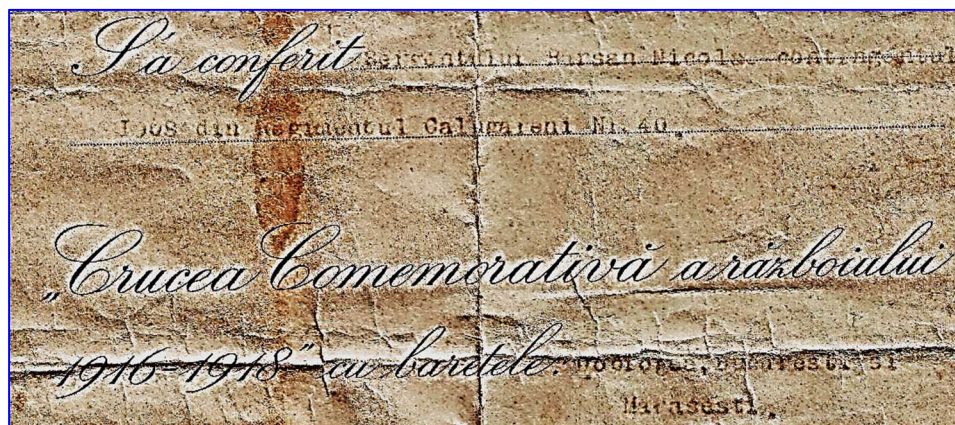 S'a conferit Sergentului Bursan Nicolae contingentul
1908 din Regimentul Calugareni Nr. 40.
„Crucea Comemorativă a războiului
1916-1918" cu baretele: Dobrogea, Bucuresti si
Marasesti.